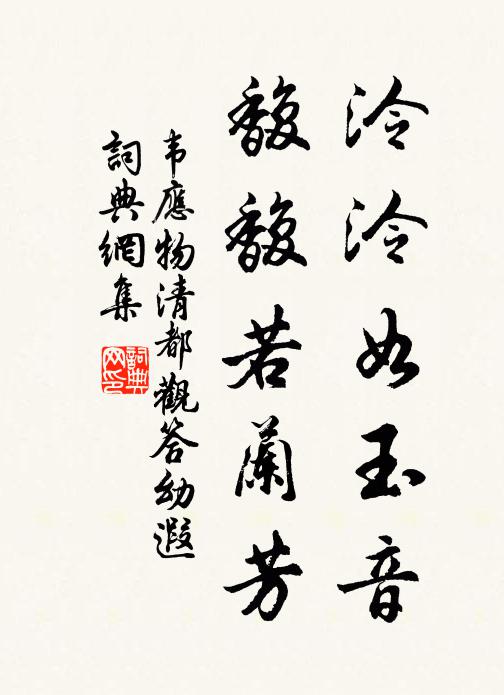 泠泠如玉音
馥馥若蘭芳
韦應物清都觀答幼遐
詞典網集
詞典
网印